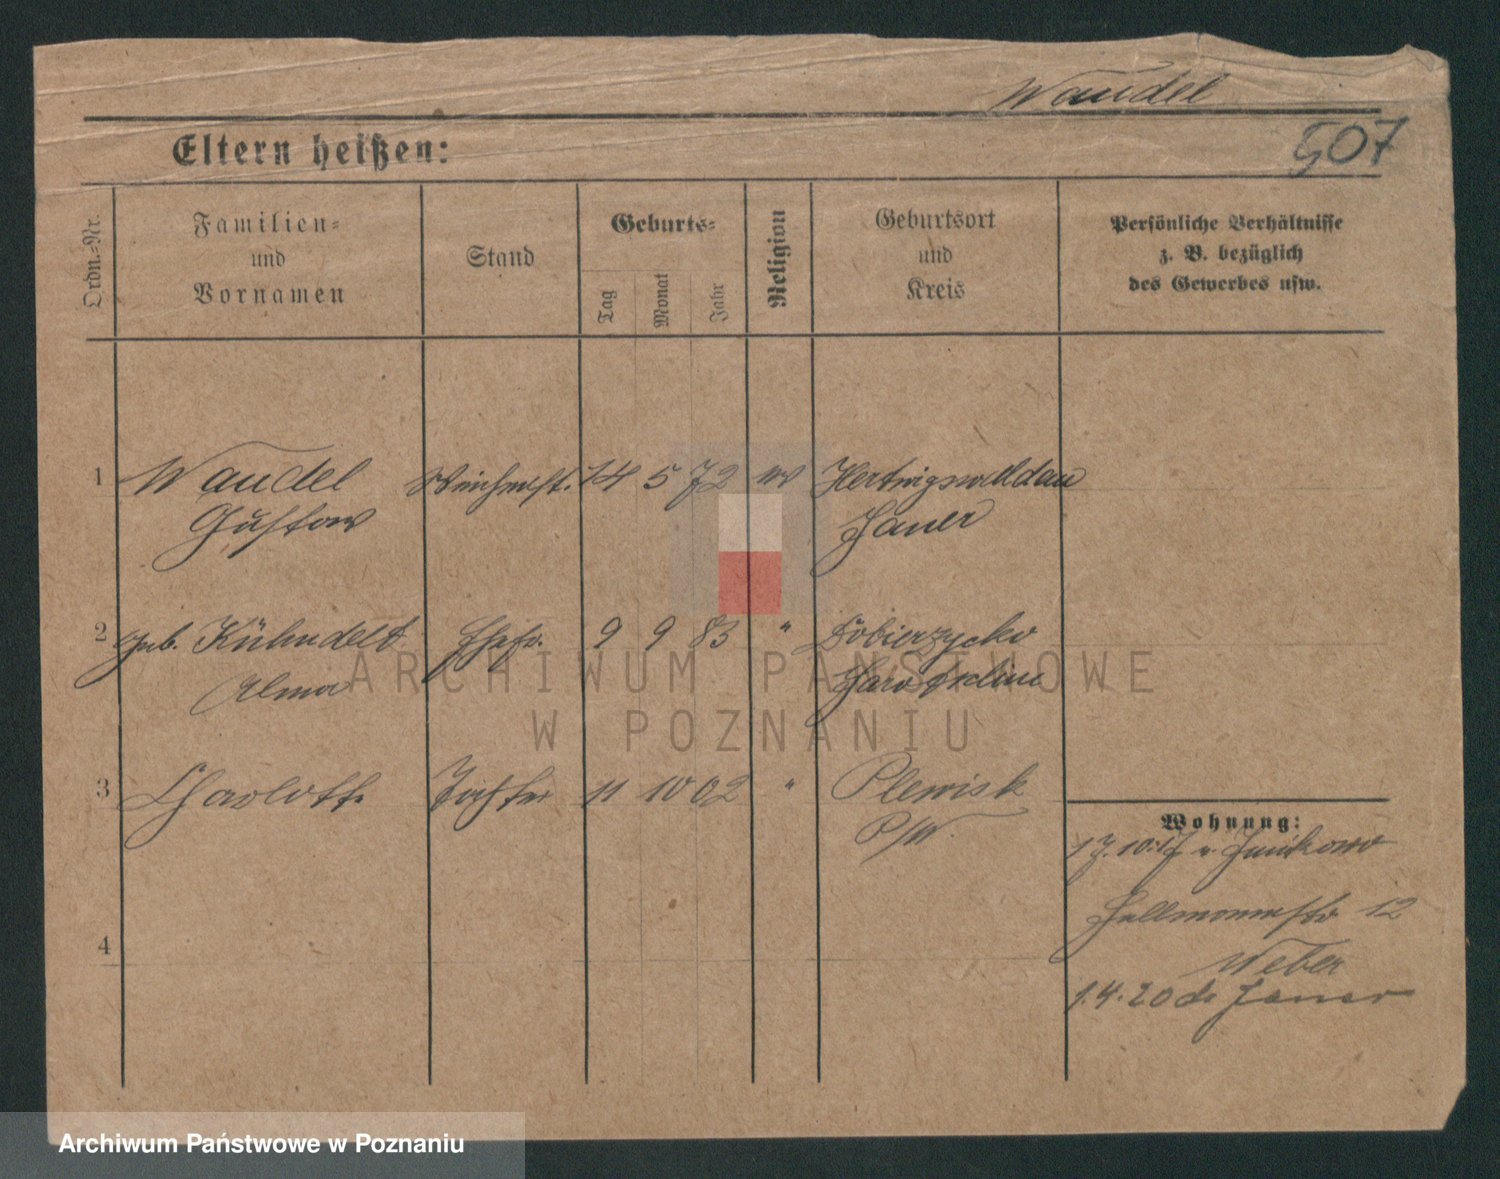 Wandel
507
Eltern heißen:
Ordn.-Nr.
Familien-
und
Vornamen
Stand
Geburts-
Tag
Monat
Jahr
Religion
Geburtsort
und
Kreis
Persönliche Verhältnisse
z. B. bezüglich
des Gewerbes usw.
1 Wandel 14 5 72 Hertwigswaldau
Gustav Jauer
2 geb. Kühndelt Ehefr. 9 9 83 " Dobierzycko
Alma
3 Tochter 11 10 02 " Plewisk
P/W.
4
Wohnung:
17.10.17 v. Junikowo
12
Weber
1.4.20 Jauer
ARCHIWUM PAŃSTWOWE
W POZNANIU
Archiwum Państwowe w Poznaniu